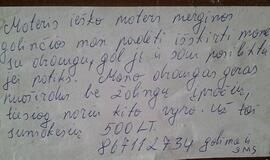 Moteris ieško moters merginos
galinčios man padėti išskirti mane
su draugu, gal ji ir sau pasiliktu
jei patiks. Mano draugas geras
nuoširdus be žalingų įpročių,
tiesiog noriu kito vyro. Už tai
sumokėsiu 500 LT.
867112734 galima ir
SMS